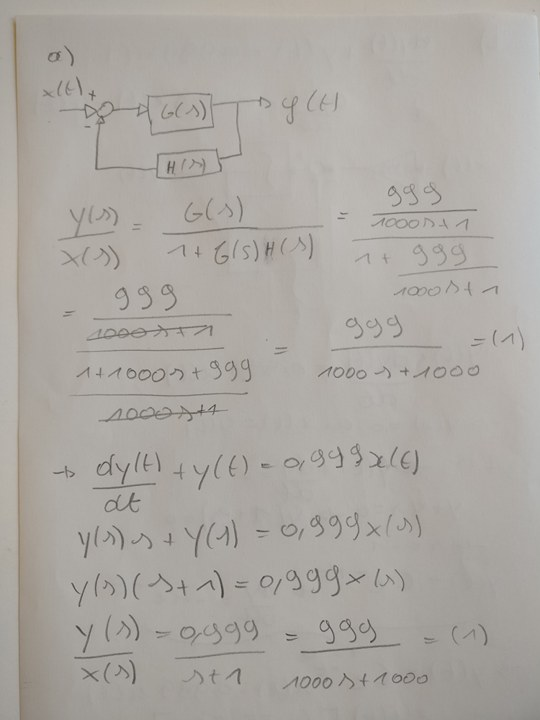 a)
x(t) + G(s) y(t)
-
H(s)
y(s)/x(s) = G(s)/(1 + G(s)H(s)) = (999/(1000s+1))/(1 + 999/(1000s+1))
= (999/(1000s+1))/((1+1000s+999)/(1000s+1)) = 999/(1000s+1000) = (1)
→ dy(t)/dt + y(t) = 0,999x(t)
y(s)s + y(s) = 0,999x(s)
y(s)(s+1) = 0,999x(s)
y(s)/x(s) = 0,999/(s+1) = 999/(1000s+1000) = (1)